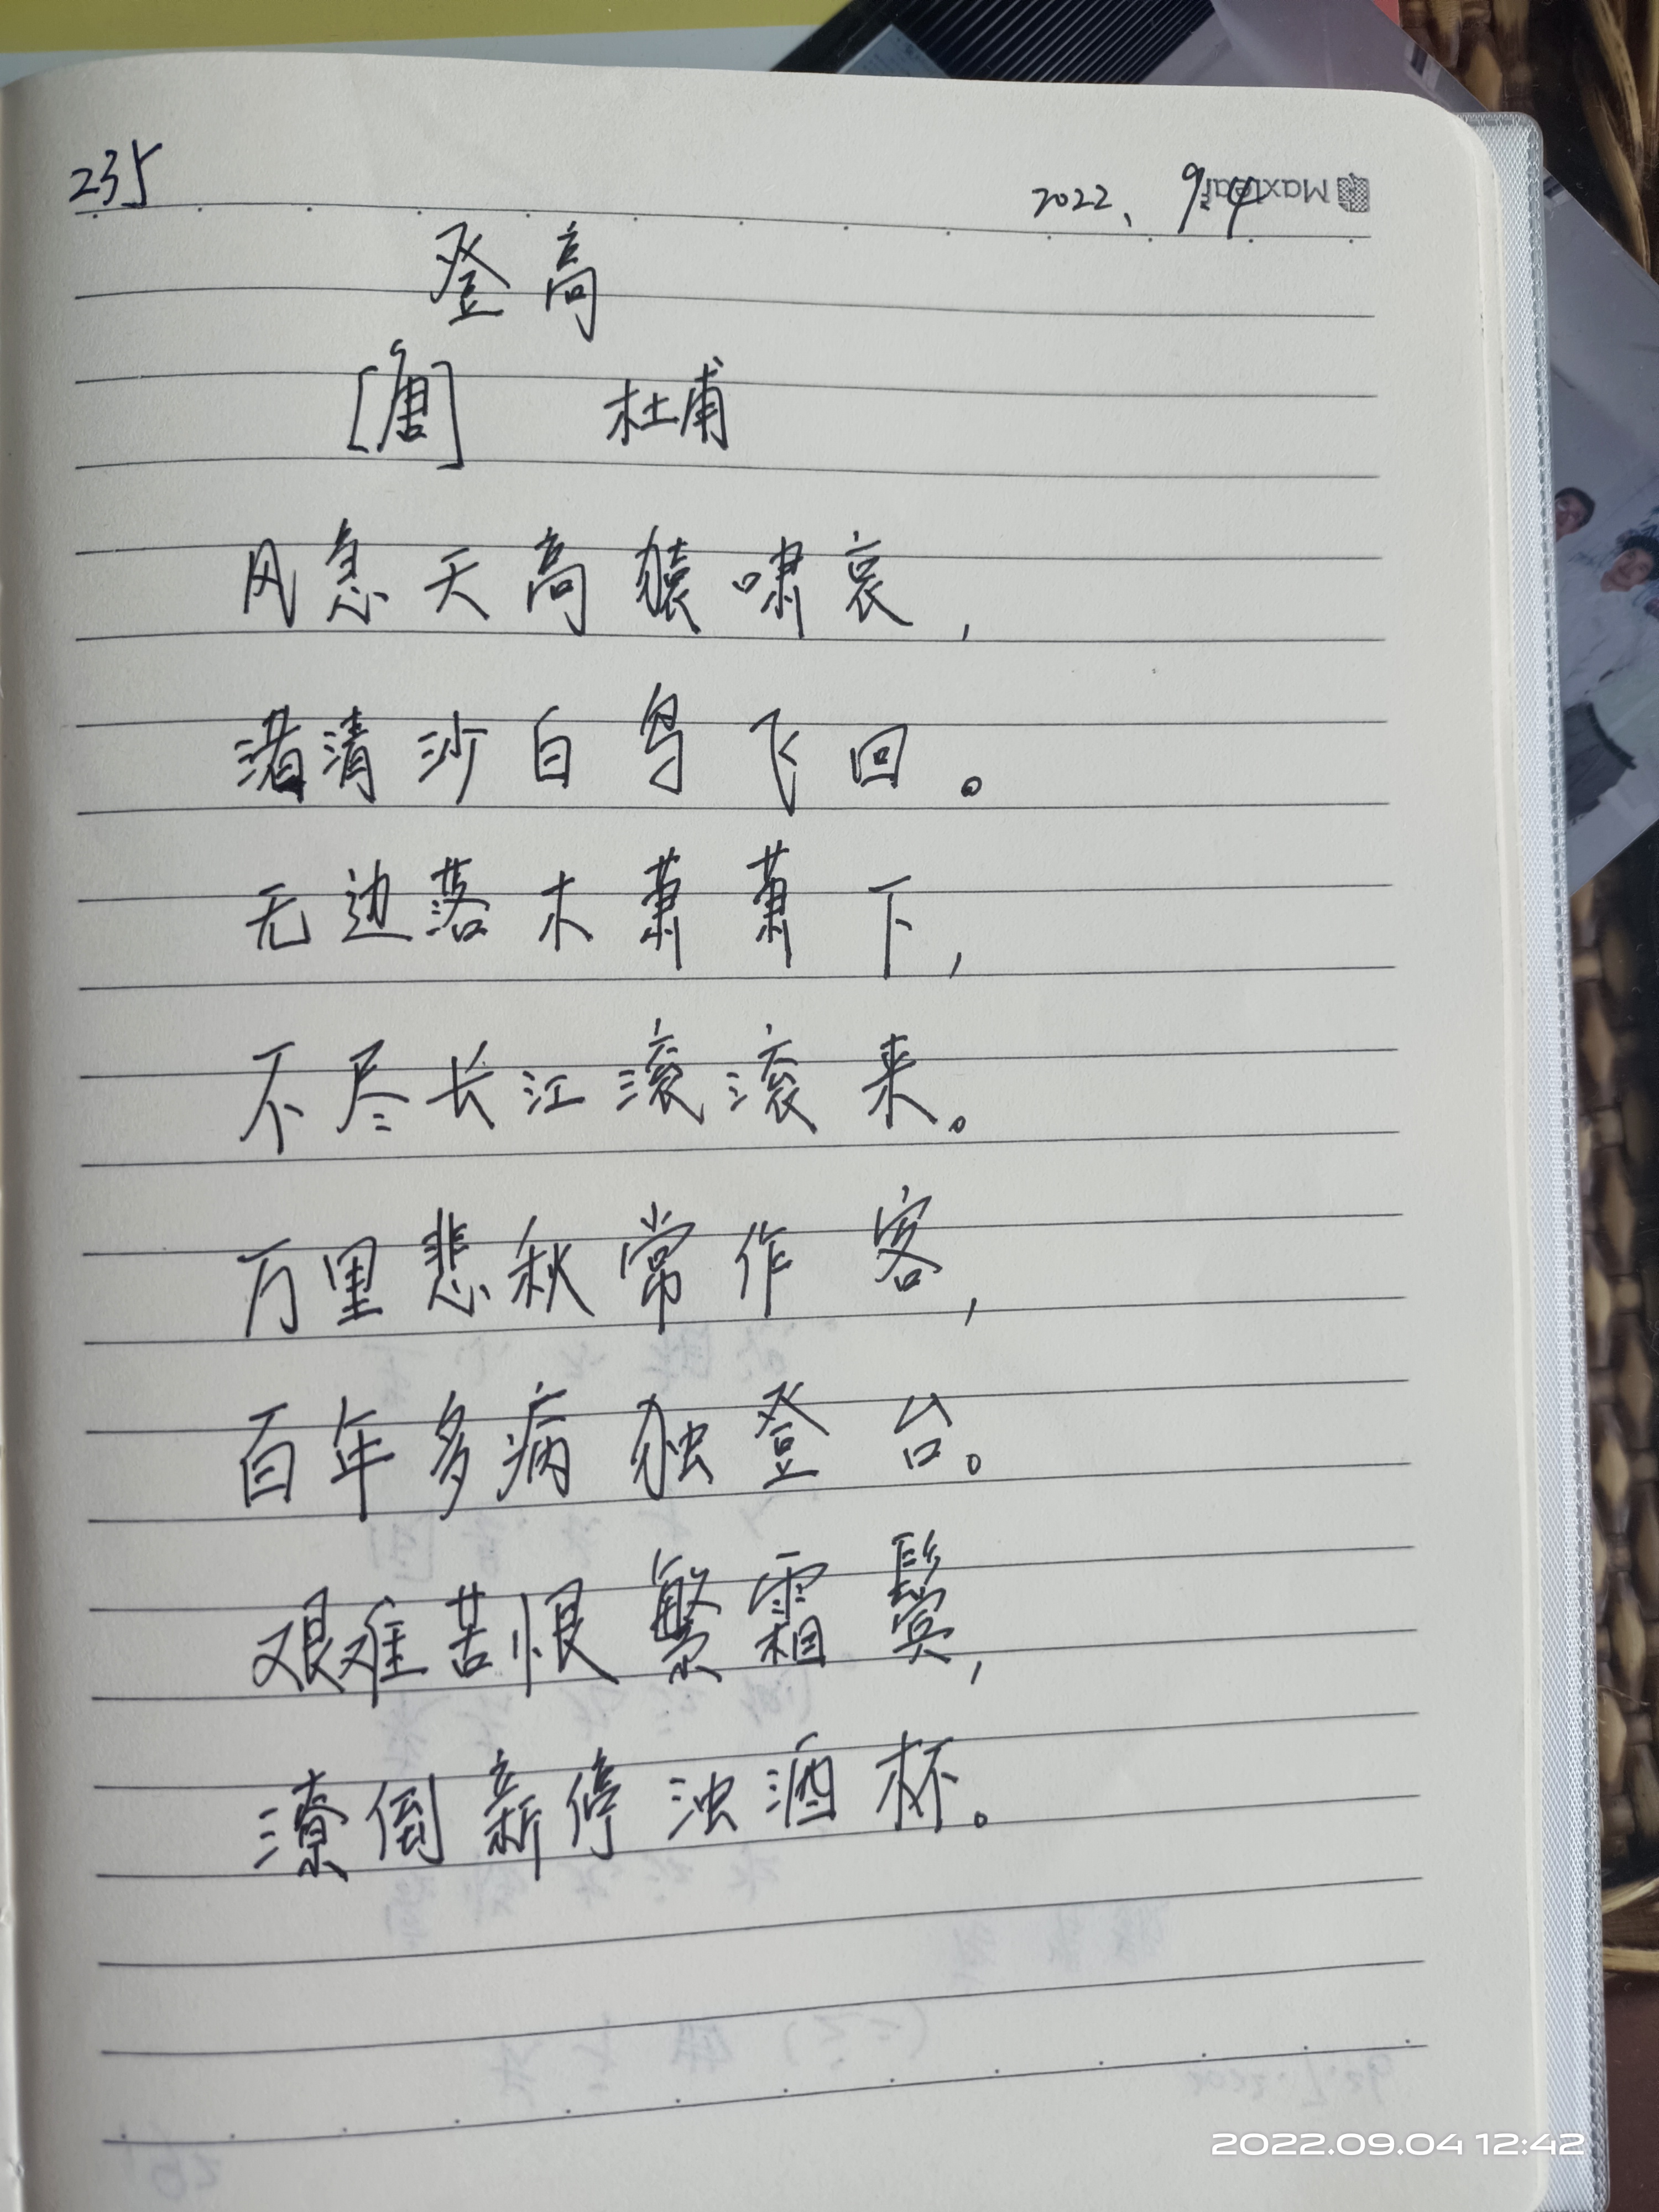 235
2022、9.4
Maxleaf
登高
[唐] 杜甫
风急天高猿啸哀,
渚清沙白鸟飞回。
无边落木萧萧下,
不尽长江滚滚来。
万里悲秋常作客,
百年多病独登台。
艰难苦恨繁霜鬓,
潦倒新停浊酒杯。
2022.09.04 12:42